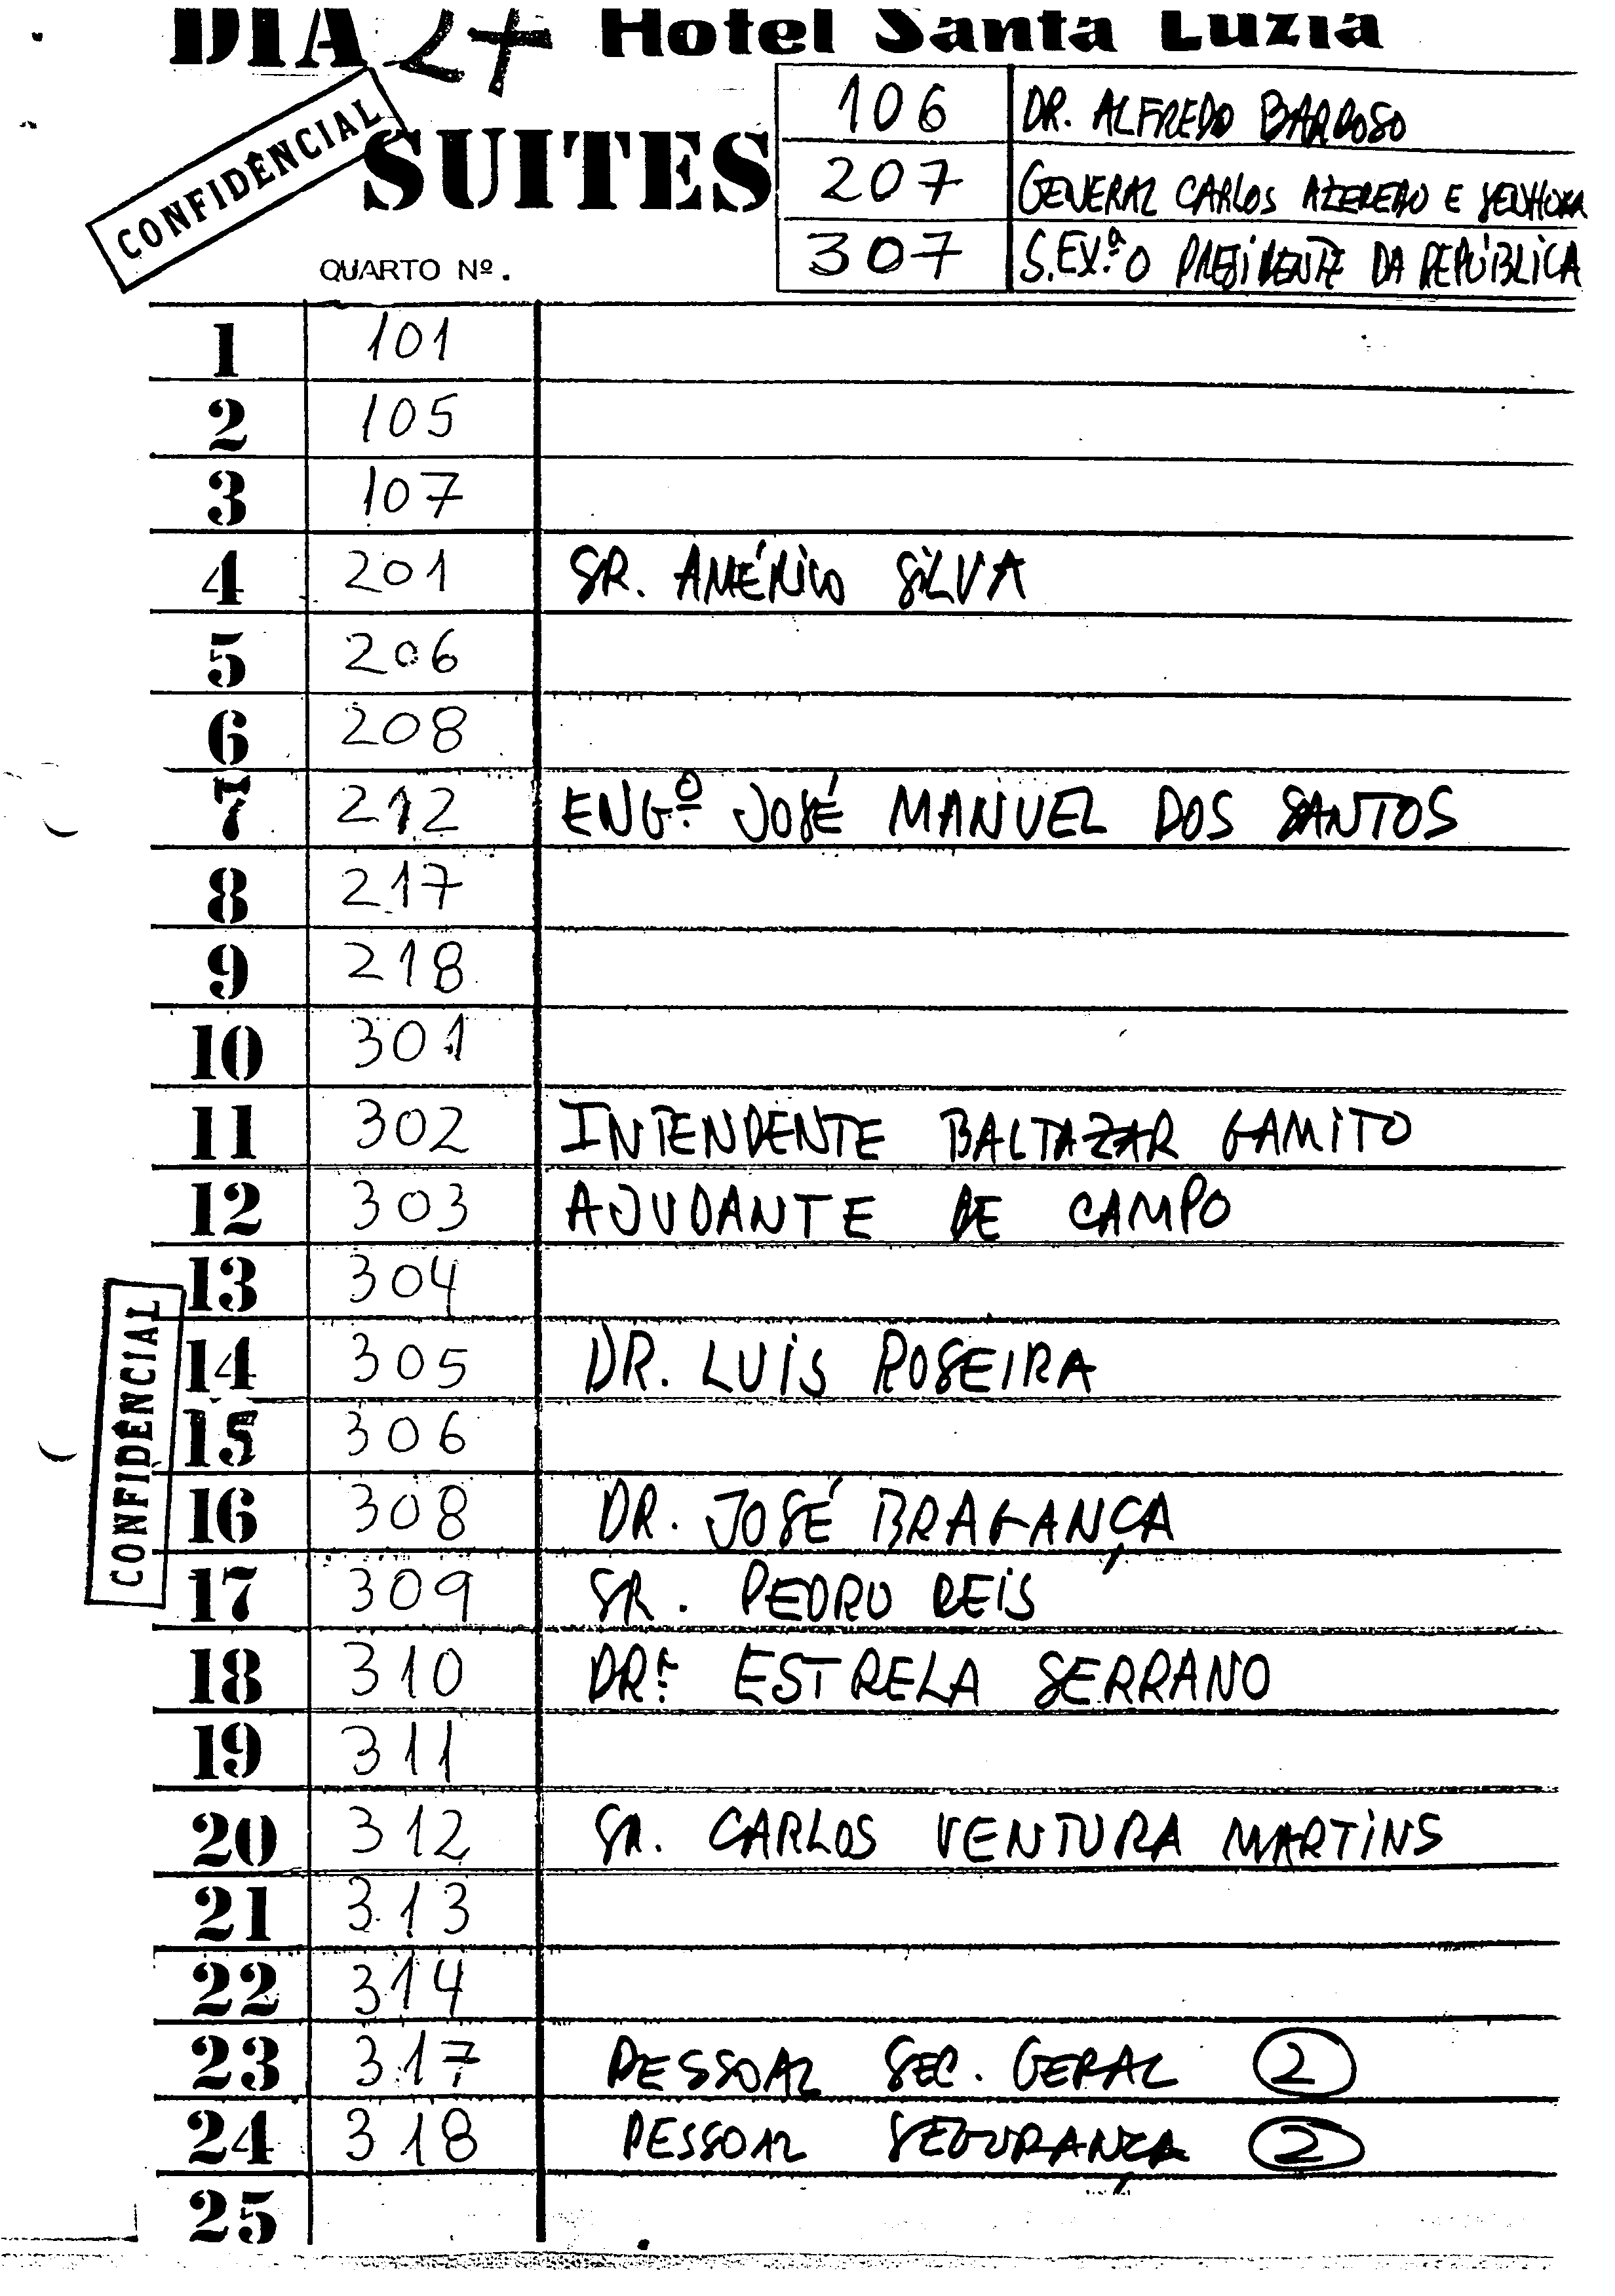 DIA 27 Hotel Santa Luzia
CONFIDÊNCIAL
SUITES
106 DR. ALFREDO BARROSO
207 GENERAL CARLOS AZEREDO E SENHORA
307 S. EX.ª O PRESIDENTE DA REPÚBLICA
QUARTO Nº.
1 101
2 105
3 107
4 201 SR. AMÉRICO SILVA
5 206
6 208
7 212 ENGº. JOSÉ MANUEL DOS SANTOS
8 217
9 218
10 301
11 302 INTENDENTE BALTAZAR GAMITO
12 303 AJUDANTE DE CAMPO
13 304
14 305 DR. LUÍS ROSEIRA
15 306
16 308 DR. JOSÉ BRAGANÇA
17 309 SR. PEDRO REIS
18 310 DRª. ESTRELA SERRANO
19 311
20 312 SR. CARLOS VENTURA MARTINS
21 313
22 314
23 317 PESSOAL SEC. GERAL 2
24 318 PESSOAL SEGURANÇA 2
25
CONFIDÊNCIAL